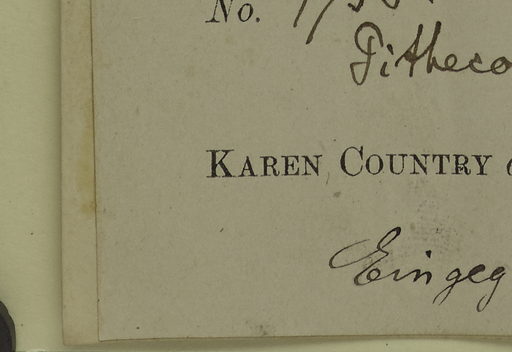 No.
Pitheco
KAREN COUNTRY
Eingeg